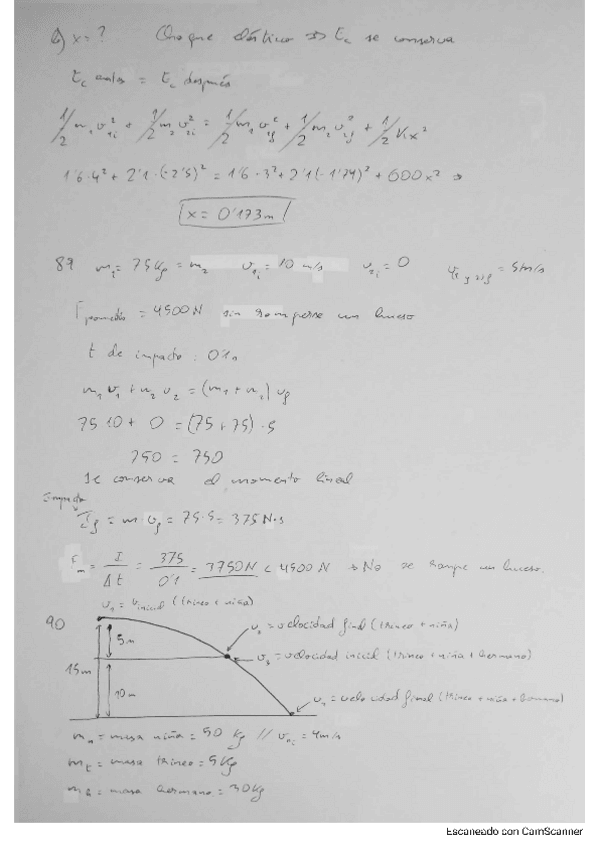 b) x = ? Choque elástico => Ec se conserva
Ec antes = Ec después
1/2 m₁ v₁i² + 1/2 m₂ v₂i² = 1/2 m₁ v₁f² + 1/2 m₂ v₂f² + 1/2 Kx²
1'6·4² + 2'1·(-2'5)² = 1'6·3² + 2'1(-1'74)² + 600x² =>
x = 0'173m
89 m₁ = 75Kg = m₂ v₁i = 10 m/s v₂i = 0 v₁ y ₂f = 5m/s
Fpromedio = 4500N sin romperse un hueso
t de impacto: 0'1s
m₁ v₁ + m₂ v₂ = (m₁ + m₂) vf
75·10 + 0 = (75 + 75)·5
750 = 750
Se conserva el momento lineal
Impacto
If = m·vf = 75·5 = 375 N·s
Fm = I/Δt = 375/0'1 = 3750N < 4500N => No se rompe un hueso.
v₁ = vinicial (trineo + niña)
90
5m
v₂ = velocidad final (trineo + niña)
v₃ = velocidad inicial (trineo + niña + hermano)
15m
10m
velocidad final (trineo + niña + hermano)
mn = masa niña = 50 Kg // v₁i = 4m/s
mt = masa trineo = 5Kg
mh = masa hermano = 30Kg
Escaneado con CamScanner